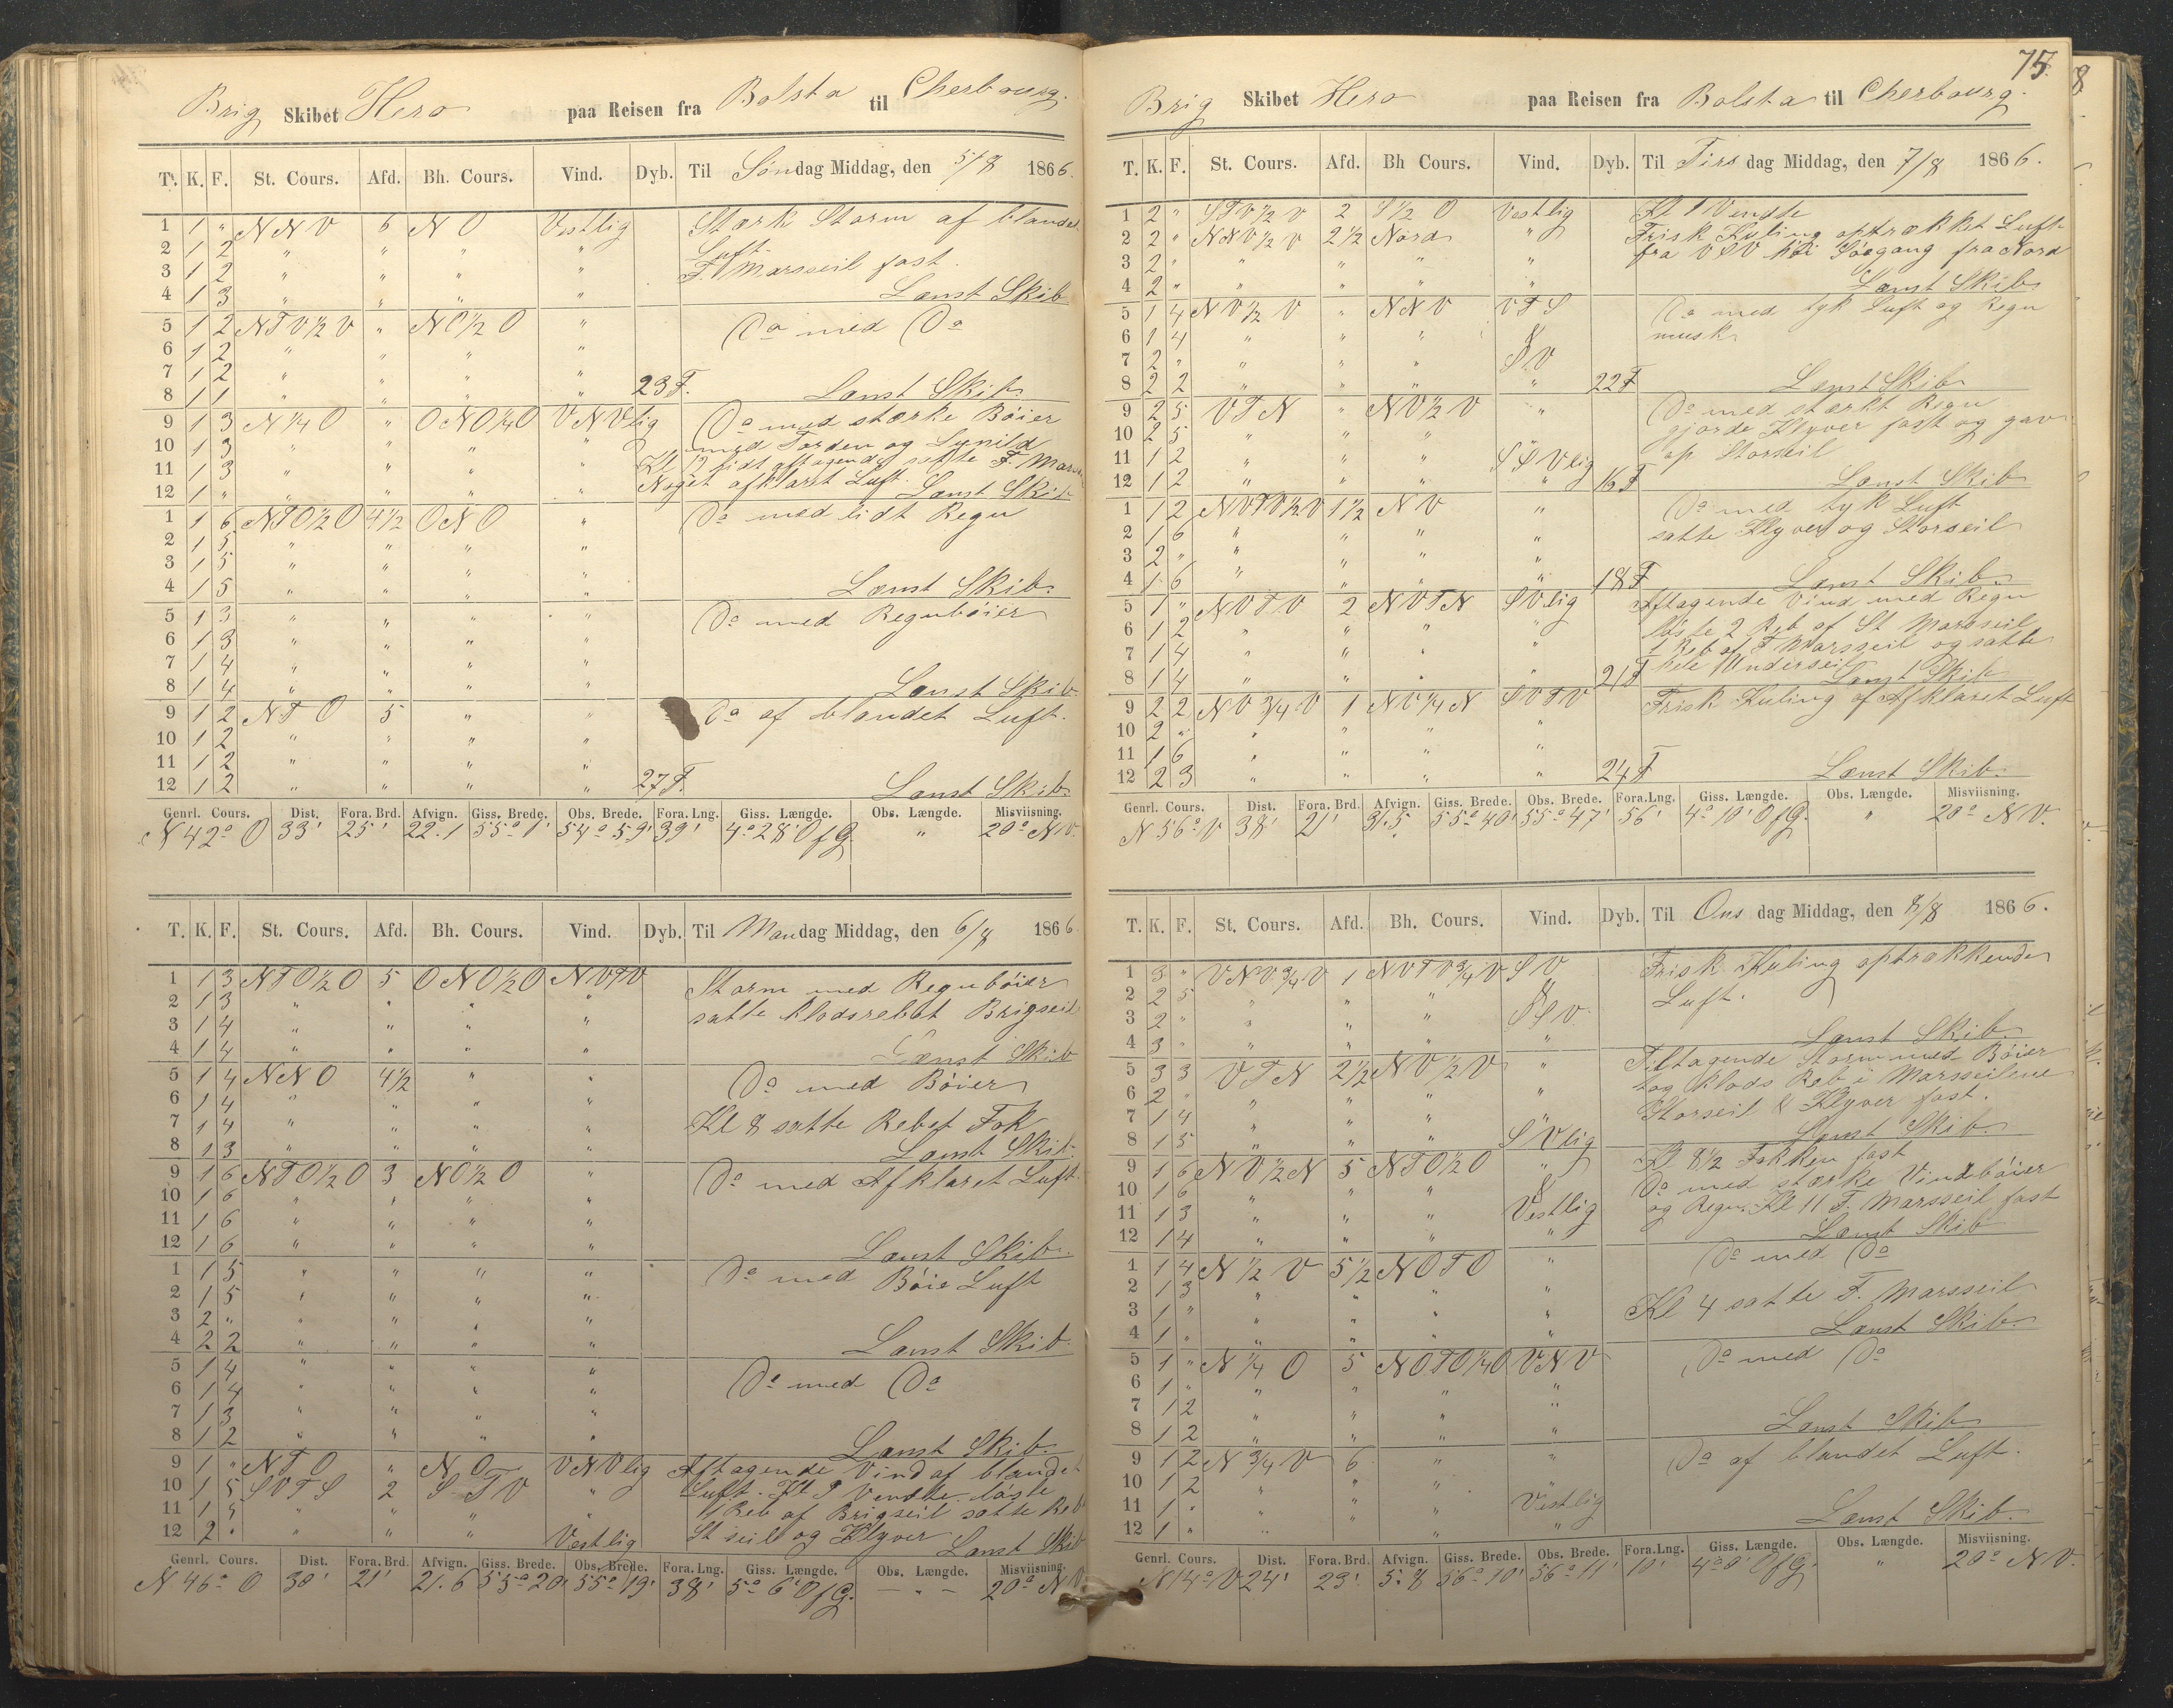 Brig Skibet Hero paa Reisen fra Bolsta til Cherbourg.
T. K. F. St. Cours. Afd. Bh. Cours. Vind. Dyb. Til Søndag Middag, den 5/8 1866.
1 1 " NNV 6 NO Vestlig Stærk Storm af blandet
2 1 2 " " " " Luft.
3 1 2 " " " " F. Marsseil fast.
4 1 3 " " " " Lænst Skib
5 1 2 NTV½V " NO½O " Do med Do
6 1 2 " " " "
7 1 2 " " " "
8 1 1 " " " " 23 F. Lænst Skib
9 1 3 N¼O " ONO¼O VNVlig Do med stærke Bøier
10 1 3 " " " " med Torden og Lynild
11 1 3 " " " " Kl 12 lidt aftagende satte F. Mars
12 1 " " " " " Noget afklaret Luft. Lænst Skib
1 1 6 NTO½O 4½ ONO " Do med lidt Regn
2 1 5 " " " "
3 1 5 " " " "
4 1 5 " " " " Lænst Skib
5 1 3 " " " " Do med Regnbøier
6 1 3 " " " "
7 1 4 " " " "
8 1 4 " " " " Lænst Skib
9 1 2 NTO 5 " " Do af blandet Luft.
10 1 2 " " " "
11 1 2 " " " "
12 1 2 " " " " 27 F. Lænst Skib.
Genrl. Cours. Dist. Fora. Brd. Afvign. Giss. Brede. Obs. Brede. Fora. Lng. Giss. Længde. Obs. Længde. Misviisning.
N 42° O 33' 25' 22.1 55° 1' 54° 59' 39' 4° 28' O f G. " 20° NV.
T. K. F. St. Cours. Afd. Bh. Cours. Vind. Dyb. Til Mandag Middag, den 6/8 1866
1 1 3 NTO½O 5 ONO½O NVTV Storm med Regnbøier
2 1 3 " " " " satte klodsrebet Brigseil
3 1 4 " " " "
4 1 4 " " " " Lænst Skib
5 1 4 NNO 4½ " " Do med Bøier
6 1 4 " " " "
7 1 4 " " " " Kl 8 satte Rebet Fok
8 1 3 " " " " Lænst Skib.
9 1 6 NTO½O 3 NO½O " Do med Afklaret Luft
10 1 6 " " " "
11 1 6 " " " "
12 1 6 " " " " Lænst Skib.
1 1 5 " " " " Do med Bøie Luft
2 1 5 " " " "
3 2 " " " " "
4 2 2 " " " " Lænst Skib
5 1 4 " " " " Do med Do
6 1 4 " " " "
7 1 3 " " " "
8 1 2 " " " " Lænst Skib.
9 1 " NTO " NO VNVlig Aftagende Vind af blandet
10 1 5 SVTS 2 S.TV " Luft. Kl 9 Vendte. løste
11 1 5 " " " " 1 Reb af Brigseil satte Reb
12 2 " " " " Vestlig St seil og Klyver Lænst Skib
Genrl. Cours. Dist. Fora. Brd. Afvign. Giss. Brede. Obs. Brede. Fora. Lng. Giss. Længde. Obs. Længde. Misviisning.
N 46° O 30' 21' 21.6 55° 20' 55° 19' 38' 5° 6' O f G. — " — 20° NV
75.
Brig Skibet Hero paa Reisen fra Bolsta til Cherbourg.
T. K. F. St. Cours. Afd. Bh Cours. Vind. Dyb. Til Tirsdag Middag, den 7/8 1866.
1 2 " STV½V 2 S½O Vestlig Kl 1 Vendte
2 2 " NNV½V 2½ Nord " Frisk Kuling optrækket Luft
3 2 " " " " " fra VSV høi Søegang fra Nord
4 2 " " " " " Lænst Skib
5 1 4 NV½V " NNV VTS Do med tyk Luft og Regn
6 1 4 " " " &
7 2 " " " " SV
8 2 2 " " " " 22 F Lænst Skib
9 2 5 VTN " NV½V " Do med stærkt Regn
10 2 5 " " " gjorde Klyver fast og gav
11 1 2 " " " SSVlig op Storseil
12 1 2 " " " " 16 F Lænst Skib
1 1 2 NVTV½V 1½ NV " Do med tyk Luft
2 1 6 " " " " satte Klyver og Storseil
3 2 " " " " "
4 1 6 " " " " 18 F Lænst Skib
5 1 " NVTV 2 NVTN SVlig Aftagende Vind med Regn
6 1 2 " " " " løste 2 Reb af St Marsseil
7 1 4 " " " " 1 Reb af F Marsseil og satte
8 1 4 " " " " 21 F hele Underseil Lænst Skib
9 2 2 NV¾V 1 NV¼N SVTV Frisk Kuling af Afklaret Luft
10 2 " " " "
11 1 6 " " " "
12 2 3 " " " " 24 F Lænst Skib.
Genrl. Cours. Dist. Fora. Brd. Afvign. Giss. Brede. Obs. Brede. Fora. Lng. Giss. Længde. Obs. Længde. Misviisning.
N 56° V 38' 21' 31.5 55° 40' 55° 47' 56' 4° 10' O f G. " 20° NV.
T. K. F. St. Cours. Afd. Bh. Cours. Vind. Dyb. Til Onsdag Middag, den 8/8 1866.
1 3 " VNV¾V 1 NVTV¾V SV Frisk Kuling optrækkende
2 2 5 " " " & Luft.
3 2 " " " " SSV.
4 3 " " " " " Lænst Skib
5 3 3 VTN 2½ NV½V " Tiltagende Storm med Bøier
6 2 " " " " " tog Klods Reb i Marsseilene
7 1 4 " " " Storseil & Klyver fast.
8 1 5 " " " SVlig Lænst Skib
9 1 6 NV½N 5 NTO½O " Kl 8½ Fokken fast
10 1 6 " " " & Do med stærke Vindbøier
11 1 3 " " " Vestlig og Regn. Kl 11 F. Marsseil fast
12 1 4 " " " " Lænst Skib
1 1 4 N½V 5½ NOTO " Do med Do
2 1 3 " " " "
3 1 " " " " " Kl 4 satte F. Marsseil
4 1 " " " " " Lænst Skib.
5 1 " N¼O 5 NOTO¼O VNV Do med Do
6 1 " " " " "
7 1 2 " " " "
8 1 2 " " " " Lænst Skib
9 1 2 N¾V 6 " " Do af blandet Luft.
10 1 2 " " " "
11 1 " " " " Vestlig
12 1 " " " " " Lænst Skib.
Genrl. Cours. Dist. Fora. Brd. Afvign. Giss. Brede. Obs. Brede. Fora. Lng. Giss. Længde. Obs. Længde. Misviisning.
N 14° V 24' 23' 5.8 56° 10' 56° 11' 10' 4° 0' O f G. " 20° NV.